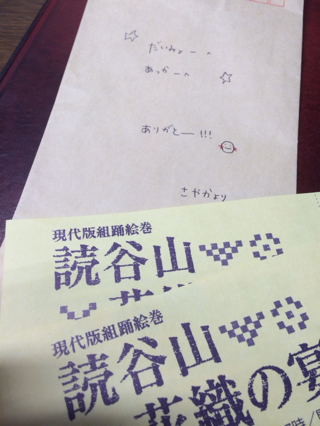 だいみょーへ
あっかーへ
ありがとー!!!
さやかより
現代版組踊絵巻
読谷山
現代版組踊絵巻
読谷山
花織の宴